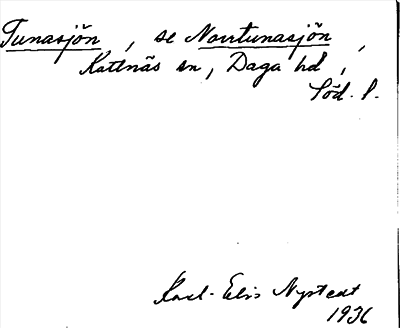 Tunasjön, se Norrtunasjön,
Kattnäs sn, Daga hd,
Söd. l.
Karl-Elis Nystedt
1936